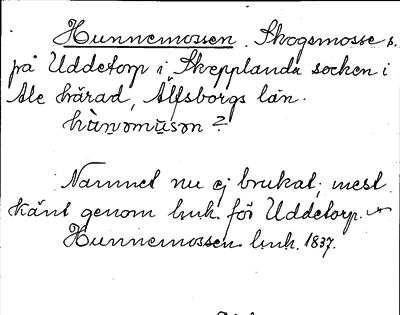 Hunnemossen. Skogsmosse s.
på Uddetorp i Skepplanda socken i
Ale härad, Älfsborgs län.
hùnᵊmùsᵊn ?
Namnet nu ej brukat; mest
känt genom huk. för Uddetorp.
Hunnemossen huk. 1837.